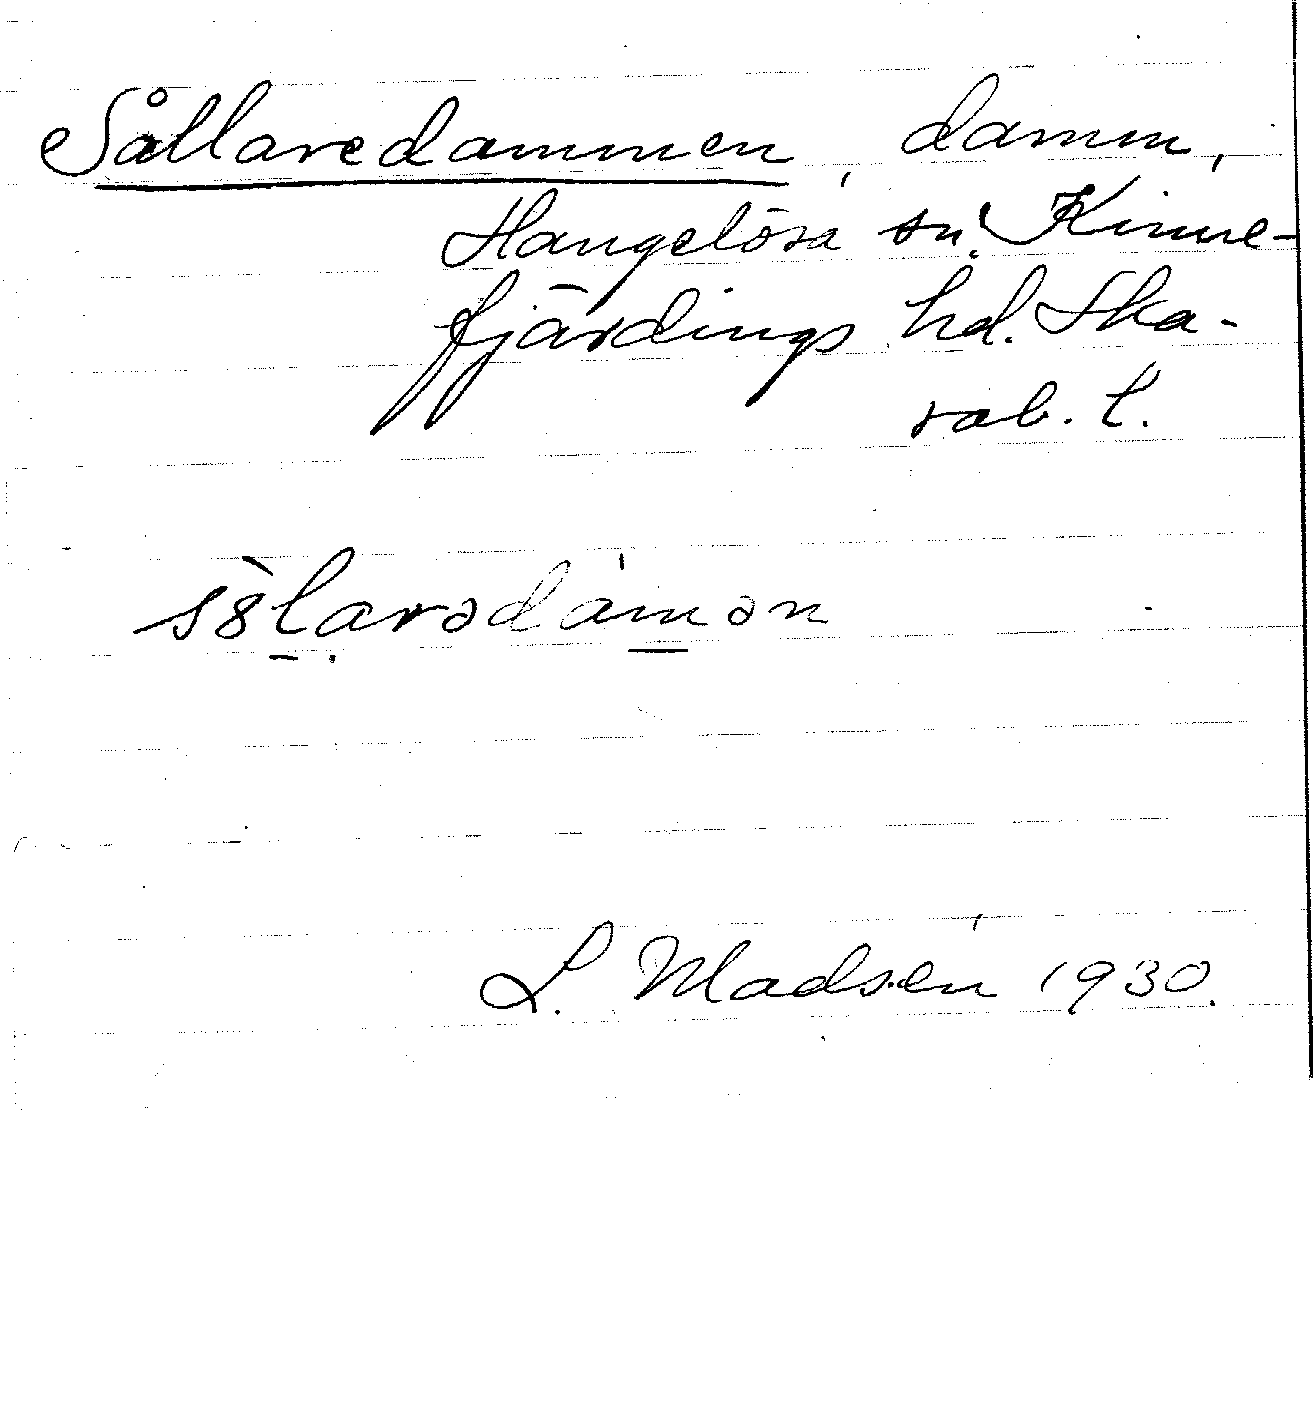 Sållaredammen, damm,
Hangelösa sn. Kinne-
fjärdings hd. Ska-
rab. l.
s8̀larədámən
L. Madsén 1930.